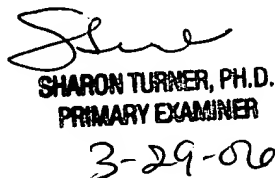 SHARON TURNER, PH.D.
PRIMARY EXAMINER
3-29-06